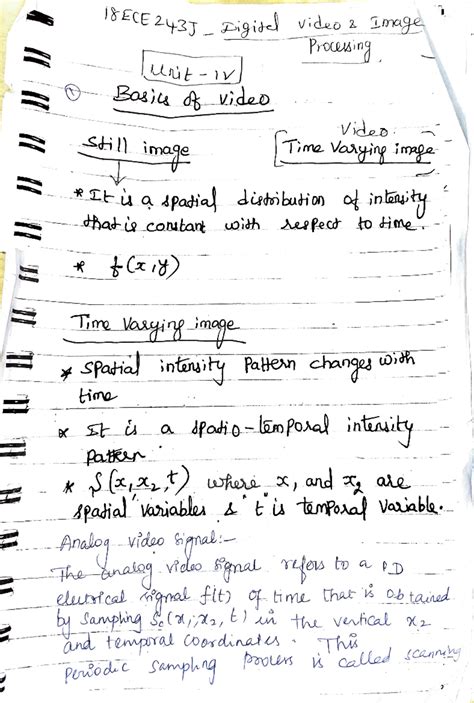 18ECE243J - Digital Video & Image
Processing
Unit - IV
① Basics of video
Still image
Video
Time Varying image
* It is a spatial distribution of intensity
that is constant with respect to time.
* f(x,y)
Time Varying image
* Spatial intensity Pattern changes with
time
* It is a spatio-temporal intensity
pattern
* S(x, x2, t) where x, and x2 are
spatial variables & "t" is temporal variable.
Analog video Signal:-
The analog video signal refers to a 1D
electrical signal f(t) of time that is obtained
by sampling Sc(x1, x2, t) in the vertical x2
and temporal coordinates. This
periodic sampling process is called scanning